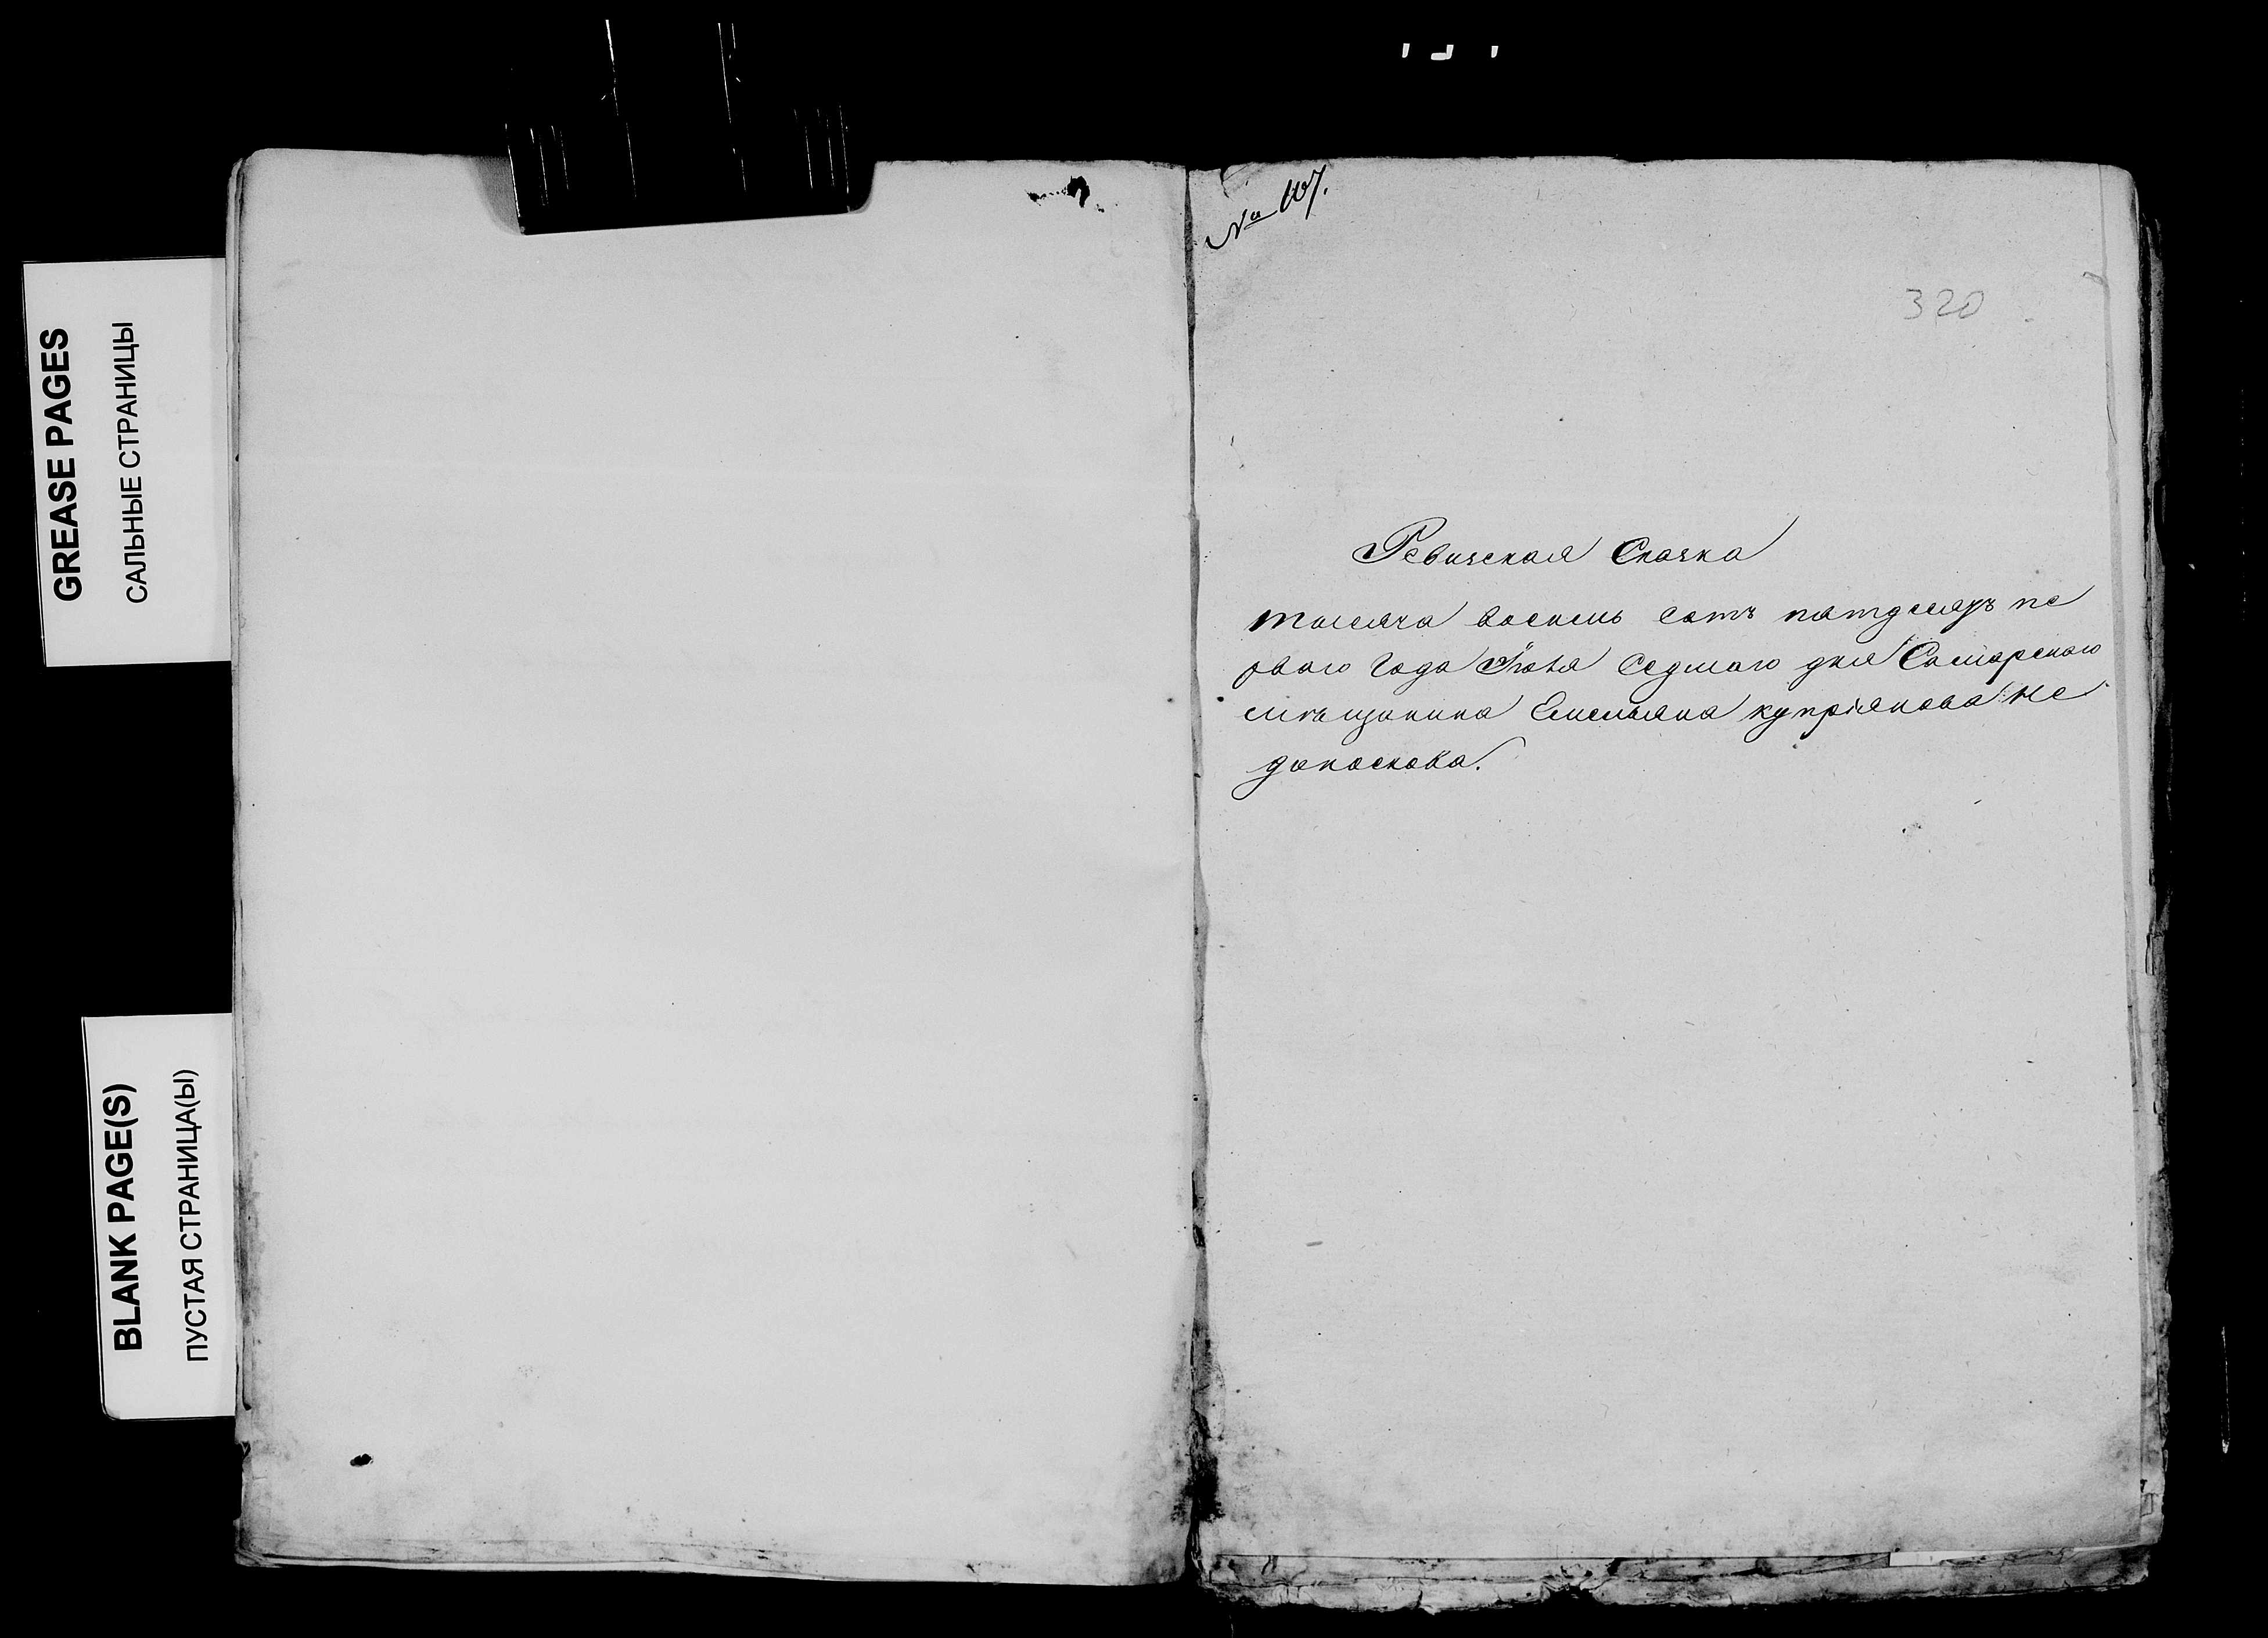 GREASE PAGES
САЛЬНЫЕ СТРАНИЦЫ
BLANK PAGE(S)
ПУСТАЯ СТРАНИЦА(Ы)
№ 107.
320
Ревизская Сказка
тысяча восемь сотъ пятдесятъ пе
рваго года Iюня Седмаго дня Самарскаго
мѣщанина Емельяна купрiянова Не
доноскова.